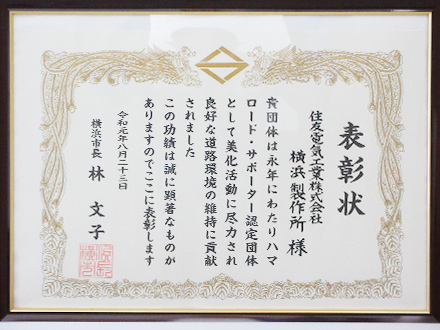 表彰状
住友電気工業株式会社
横浜製作所 様
貴団体は永年にわたりハマ
ロード・サポーター認定団体
として美化活動に尽力され
良好な道路環境の維持に貢献
されました
この功績は誠に顕著なものが
ありますのでここに表彰します
令和元年八月二十三日
横浜市長 林 文子